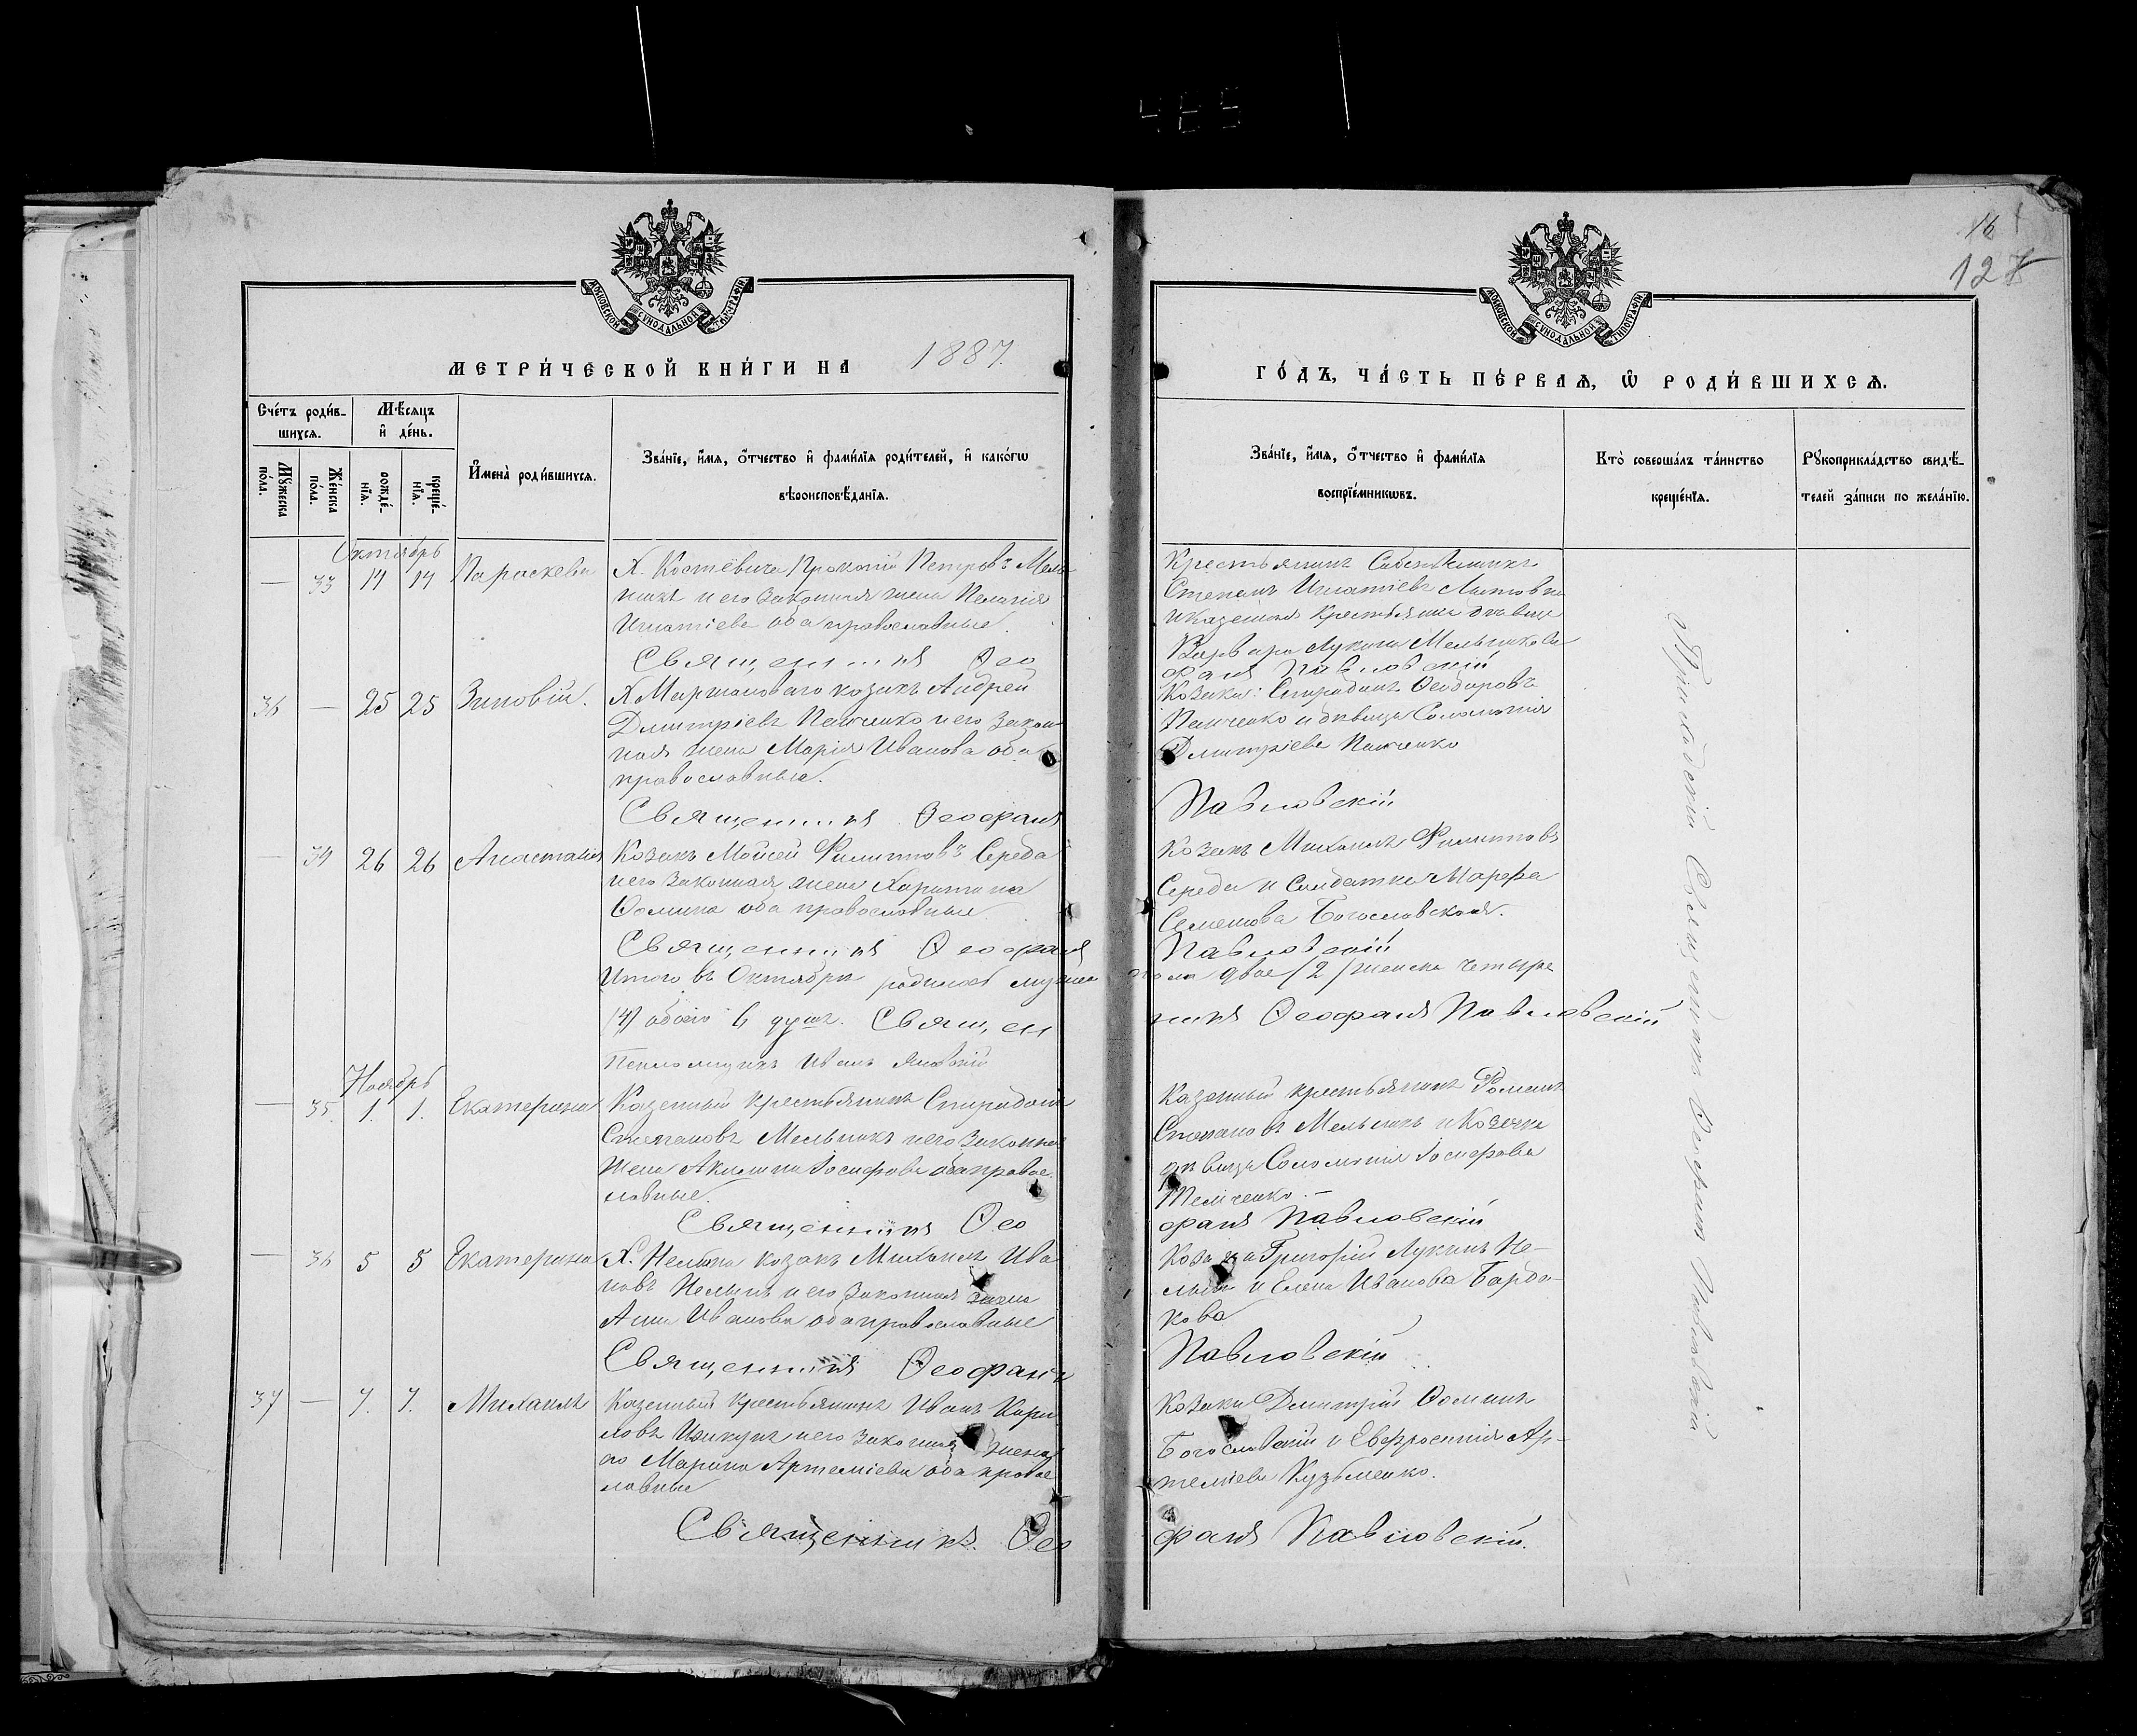 485
16
127
МОСКОВСКОЙ СУНОДАЛЬНОЙ ТИПОГРАФІИ
МОСКОВСКОЙ СУНОДАЛЬНОЙ ТИПОГРАФІИ
МЕТРИ́ЧЕСКОЙ КНИ́ГИ НА 1887.
ГО́ДЪ, ЧА́СТЬ ПЕ́РВАѦ, Ѡ҆ РОДИ́ВШИХСѦ.
Сче́тъ роди́в-
шихсѧ.
Мѣ́сѧцъ
и҆ де́нь.
Мꙋ́жеска
по́ла.
Же́нска
по́ла.
рожде́-
нїѧ.
креще́-
нїѧ.
И҆мена̀ роди́вшихсѧ.
Зва́нїе, и҆́мѧ, ѻ҆́тчество и҆ фами́лїѧ роди́телей, и҆ како́гѡ
вѣроисповѣ́данїѧ.
Зва́нїе, и҆́мѧ, ѻ҆́тчество и҆ фами́лїѧ
воспрїе́мникѡвъ.
Кто̀ соверша́лъ та́инство
креще́нїѧ.
Рꙋкоприкла́дство свидѣ́-
телей за́писи по жела́нїю.
Октябрь
— 33 14 14 Параскева
Х. Костевича Прокопій Петровъ Мель
никъ и его законная жена Пелагія
Игнатіева оба православные.
Священникъ Ѳео
Крестьянинъ
Степанъ Игнатіевъ
и казенная крестьянка дѣвица
Варвара Лукина Мельникова
фанъ Павловскій
36 — 25 25 Зиновій.
Х. козакъ Андрей
Димитріевъ Панченко и его закон
ная жена Марія Иванова оба
православные.
Священникъ Ѳеофанъ
Козаки: Спиридонъ Ѳеодоровъ
Панченко и дѣвица Соломонія
Димитріева Панченко
Павловскій
— 34 26 26 Анастасія
Козакъ Мойсей Филипповъ Середа
и его законная жена Харитина
Ѳомина оба православные
Священникъ Ѳеофанъ
Козакъ Михаилъ Филипповъ
Середа и Солдатка Марфа
Семенова Богословская.
Павловскій
Итого въ Октябрѣ родилось мужеска
пола двое /2/ женска четыре
/4/ обоего 6 душъ. Священ
никъ Ѳеофанъ Павловскій
Псаломщикъ Иванъ
Ноябрь
— 35 1. 1. Екатерина
Казенный крестьянинъ Спиридонъ
Степановъ Мельникъ и его законная
жена Акилина Іосифова оба правос
лавные.
Священникъ Ѳео
Казенный крестьянинъ Романъ
Степановъ Мельникъ и Козачка
дѣвица Соломонія Іосифова
фанъ Павловскій
— 36 5 5 Екатерина
Х. козакъ Михаилъ Ива
новъ и его законная жена
Анна Иванова оба православные
Священникъ Ѳеофанъ
Козаки Григорій Лукинъ Не-
и Елена Иванова Барда-
кова
Павловскій
37 — 7. 7. Михаилъ
Казенный крестьянинъ Иванъ Кири
ловъ и его законная жена
Марина Артеміева оба правос
лавные
Священникъ Ѳео
Козаки Димитрій Ѳоминъ
Богословскій и Евфросинія Ар-
теміева Кузьменко.
фанъ Павловскій.
Приходскій Священникъ Ѳеофанъ Павловскій